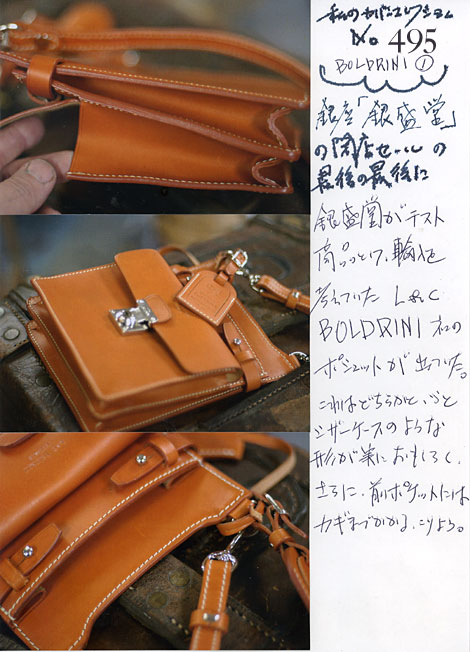 私のカバンコレクション
No. 495
BOLDRINI ①
銀座「銀盛堂」
の閉店セールの
最後の最後に
銀盛堂がテスト
商品として、輸入を
考えていた L&C
BOLDRINI 社の
ポシェットが出ていた。
これはどちらかというと
シザーケースのような
形が実におもしろく、
さらに、前ポケットには
カギまでかかる、こりよう。